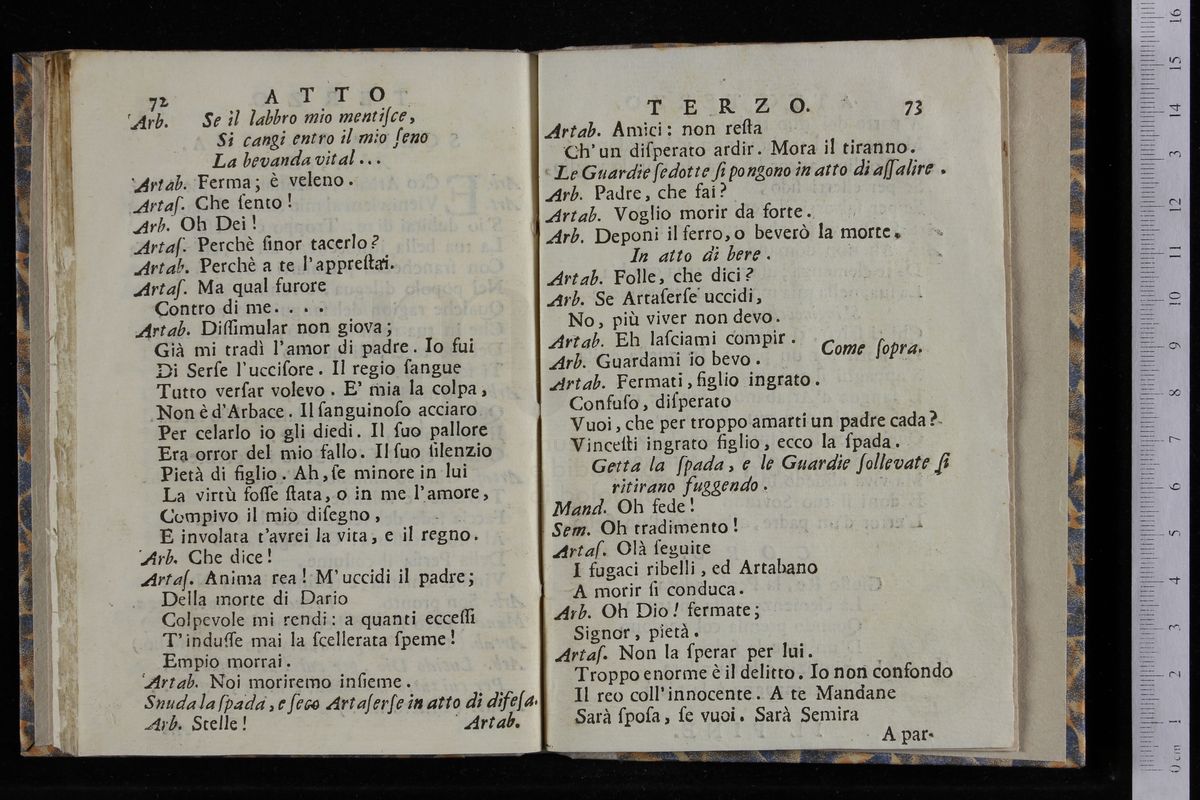 72 ATTO
Arb. Se il labbro mio mentiſce,
Si cangi entro il mio ſeno
La bevanda vital...
Artab. Ferma; è veleno.
Artaſ. Che ſento!
Arb. Oh Dei!
Artaſ. Perchè ſinor tacerlo?
Artab. Perchè a te l'appreſtai.
Artaſ. Ma qual furore
Contro di me. . . .
Artab. Diſſimular non giova;
Già mi tradì l'amor di padre. Io fui
Di Serſe l'ucciſore. Il regio ſangue
Tutto verſar volevo. E' mia la colpa,
Non è d'Arbace. Il ſanguinoſo acciaro
Per celarlo io gli diedi. Il ſuo pallore
Era orror del mio fallo. Il ſuo ſilenzio
Pietà di figlio. Ah, ſe minore in lui
La virtù foſſe ſtata, o in me l'amore,
Compivo il mio diſegno,
E involata t'avrei la vita, e il regno.
Arb. Che dice!
Artaſ. Anima rea! M'uccidi il padre;
Della morte di Dario
Colpevole mi rendi: a quanti ecceſſi
T'induſſe mai la ſcellerata ſpeme!
Empio morrai.
Artab. Noi moriremo inſieme.
Snuda la ſpada, e ſeco Artaſerſe in atto di difeſa.
Arb. Stelle!
Artab.
TERZO. 73
Artab. Amici: non reſta
Ch'un diſperato ardir. Mora il tiranno.
Le Guardie ſedotte ſi pongono in atto di aſſalire.
Arb. Padre, che fai?
Artab. Voglio morir da forte.
Arb. Deponi il ferro, o beverò la morte.
In atto di bere.
Artab. Folle, che dici?
Arb. Se Artaſerſe uccidi,
No, più viver non devo.
Artab. Eh laſciami compir.
Arb. Guardami io bevo. Come ſopra.
Artab. Fermati, figlio ingrato.
Confuſo, diſperato
Vuoi, che per troppo amarti un padre cada?
Vinceſti ingrato figlio, ecco la ſpada.
Getta la ſpada, e le Guardie ſollevate ſi
ritirano fuggendo.
Mand. Oh fede!
Sem. Oh tradimento!
Artaſ. Olà ſeguite
I fugaci ribelli, ed Artabano
A morir ſi conduca.
Arb. Oh Dio! fermate;
Signor, pietà.
Artaſ. Non la ſperar per lui.
Troppo enorme è il delitto. Io non confondo
Il reo coll'innocente. A te Mandane
Sarà ſpoſa, ſe vuoi. Sarà Semira
A par-
0 cm 1 2 3 4 5 6 7 8 9 10 11 12 13 14 15 16